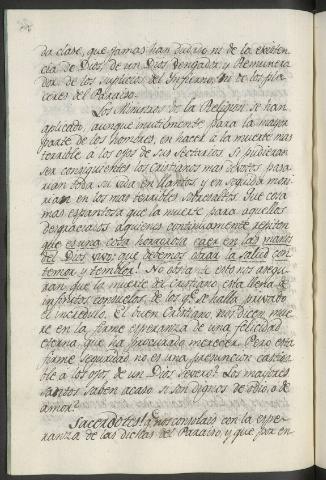 da clase, que jamas han dudado, ni de la existen
cia de Dios, de un Dios vengador, y Remunera
dor, de los suplicios del Infierno, ni de los pla
ceres del Paraiso.
Los Ministros de la Religion se han
aplicado, aunque inutilmente para la mayor
parte de los hombres, en hacer a la muerte mas
terrible a los ojos de sus sectarios. Si pudieran
ser consiguientes los Cristianos mas devotos pasa
rian toda su vida en llantos y en seguida mori
rian en los mas terribles sobresaltos. Que cosa
mas espantosa que la muerte para aquellos
desgraciados a quienes continuamente repiten
que es una cosa horrorosa caer en las manos
del Dios vivo; que debemos obrar la salud con
temor y temblor! No obstante esto nos asegu
ran que la muerte del Cristiano esta llena de
infinitos consuelos, de los qs. se halla privado
el incredulo. El buen Cristiano, nos dicen, mue
re en la firme esperanza de una felicidad
eterna, que ha procurado merecer. Pero esta
firme seguridad no es una presuncion castiga
ble a los ojos de un Dios severo? Los mayores
santos saben acaso si son dignos de odio, o de
amor?
Sacerdotes! que nos consolais con la espe
ranza de las dichas del Paraiso, y que por en